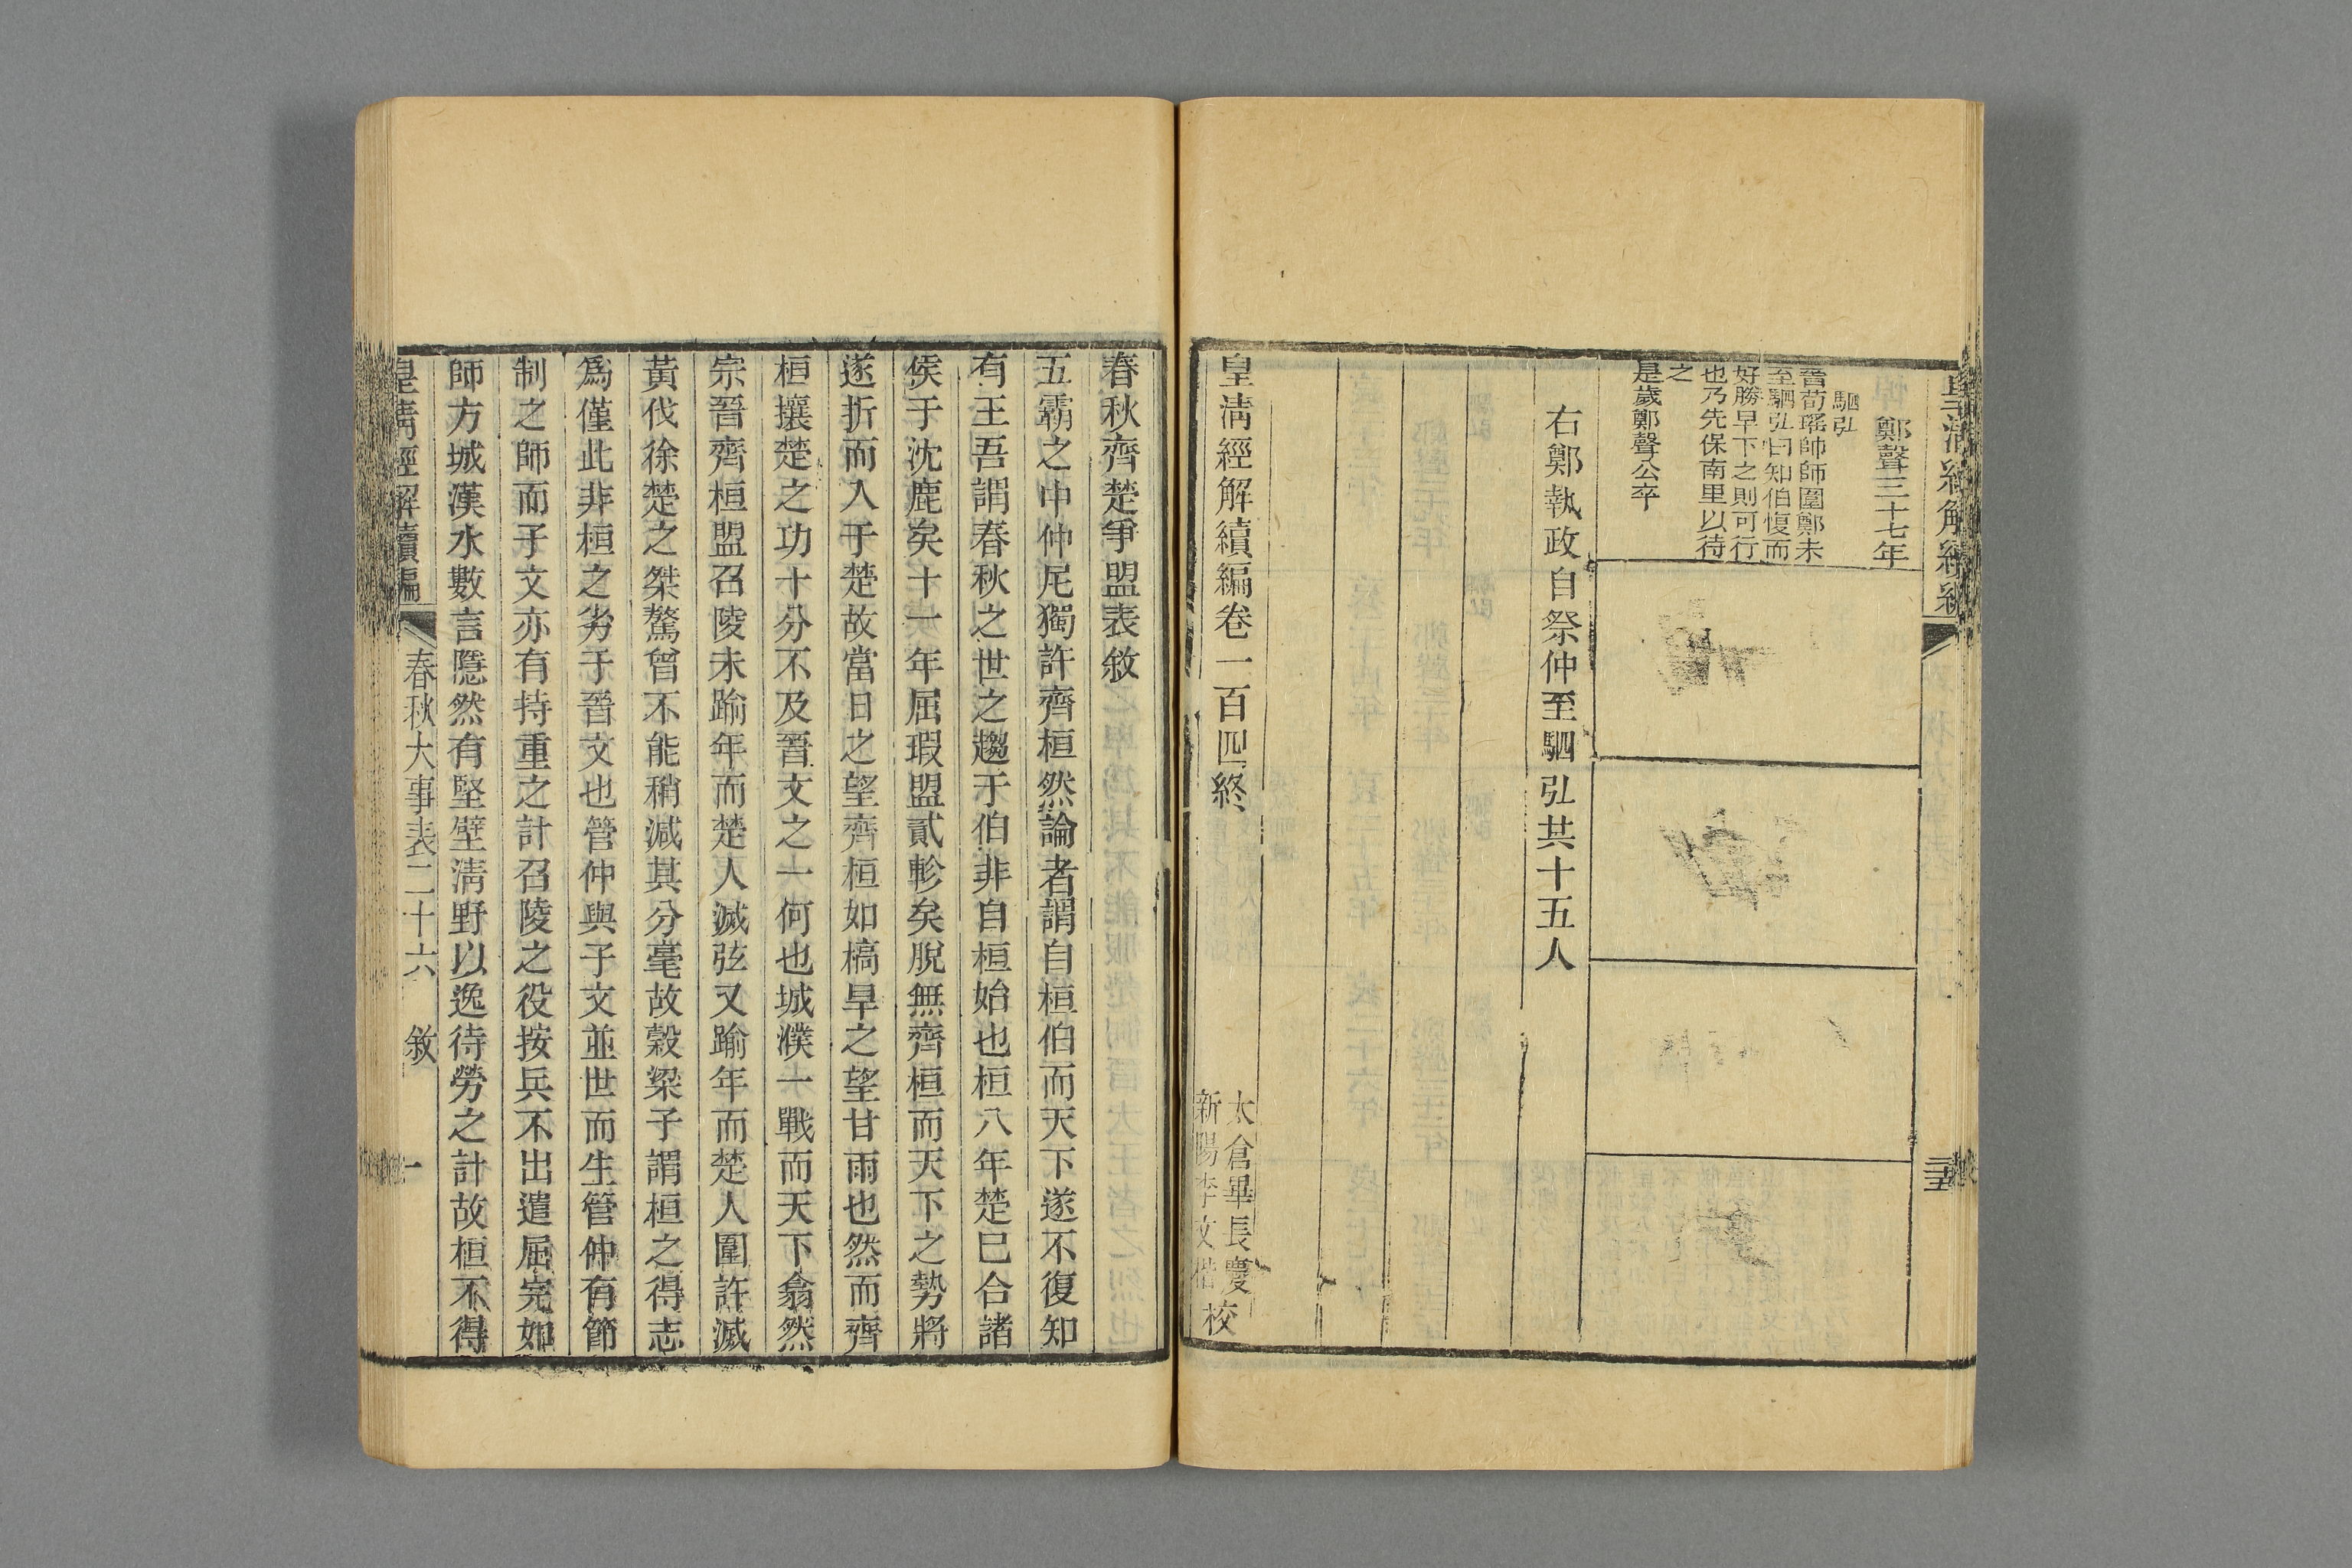 皇清經解續編
鄭聲三十七年
駟弘
晉荀瑤帥師圍鄭未
至駟弘曰知伯愎而
好勝早下之則可行
也乃先保南里以待
之
是歲鄭聲公卒
右鄭執政自祭仲至駟弘共十五人
皇清經解續編卷一百四終
太倉畢長慶
新陽李文楷
校
春秋齊楚爭盟表敘
五霸之中仲尼獨許齊桓然論者謂自桓伯而天下遂不復知
有王吾謂春秋之世之趨于伯非自桓始也桓八年楚已合諸
侯于沈鹿矣十一年屈瑕盟貳軫矣脫無齊桓而天下之勢將
遂折而入于楚故當日之望齊桓如槁旱之望甘雨也然而齊
桓攘楚之功十分不及晉文之一何也城濮一戰而天下翕然
宗晉齊桓盟召陵未踰年而楚人滅弦又踰年而楚人圍許滅
黃伐徐楚之桀驁曾不能稍減其分毫故穀梁子謂桓之得志
為僅此非桓之劣于晉文也管仲與子文並世而生管仲有節
制之師而子文亦有持重之計召陵之役按兵不出遣屈完如
師方城漢水數言隱然有堅壁清野以逸待勞之計故桓不得
皇清經解續編
春秋大事表二十六 敘
一